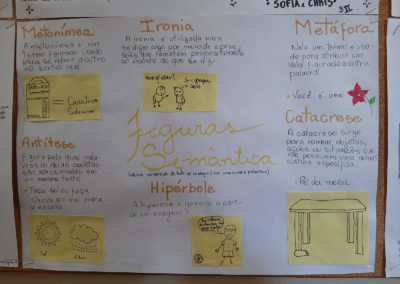 SOFIA e CHRIS
3ºI
Metonímea
A metonímea é um
termo poemado usado
para se referir a outro
no sentido real.
BAND-AID
= Curativo
Ironia
A ironia é utilizada para
se dizer algo por meio de expres-
sões que remetem propositalmen-
te ao oposto do que se diz.
Metáfora
Nela um termo é usa-
do para atribuir um
valor e significa a outra
palavra.
• Você é uma
Figuras
Semântica
Antítese
Figura pela qual pala-
vras ou ideias opostas
são aproximadas em
um mesmo texto.
• Faça sol ou faça
chuva eu irei para
a escola.
Hipérbole
A hipérbole é gerada a partir
de um exagero!
Catacrese
A catacrese surge
para nomear objetos,
ações ou situações que
não possuem uma nomen-
clatura específica.
• Pé da mesa